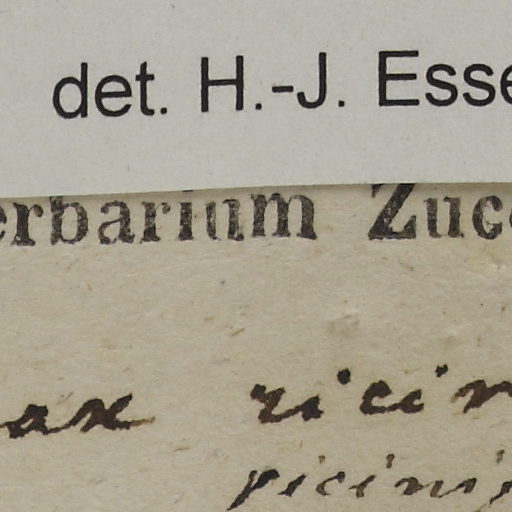 det. H.-J. Esse
erbarium Zucc
ax ricin
ricini